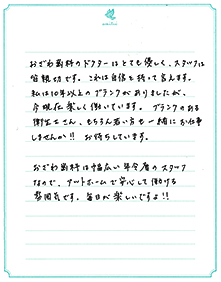 おざわ歯科のドクターはとても優しく、スタッフは
皆親切です。これは自信を持って言えます。
私は10年以上のブランクがありましたが、
今現在楽しく働いています。ブランクのある
衛生士さん、もちろん若い方も一緒にお仕事
しませんか!! お待ちしています。
おざわ歯科は幅広い年令層のスタッフ
なので、アットホームで安心して働ける
雰囲気です。毎日が楽しいですよ!!